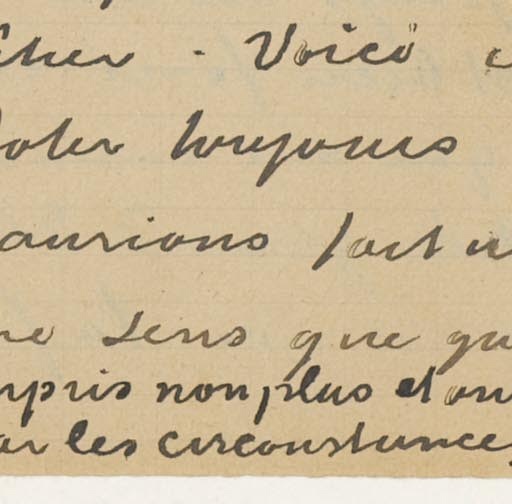 cher . Voici
voter toujours
aurions fait
ne sens que qu
mpris non plus et on
ar les circonstances